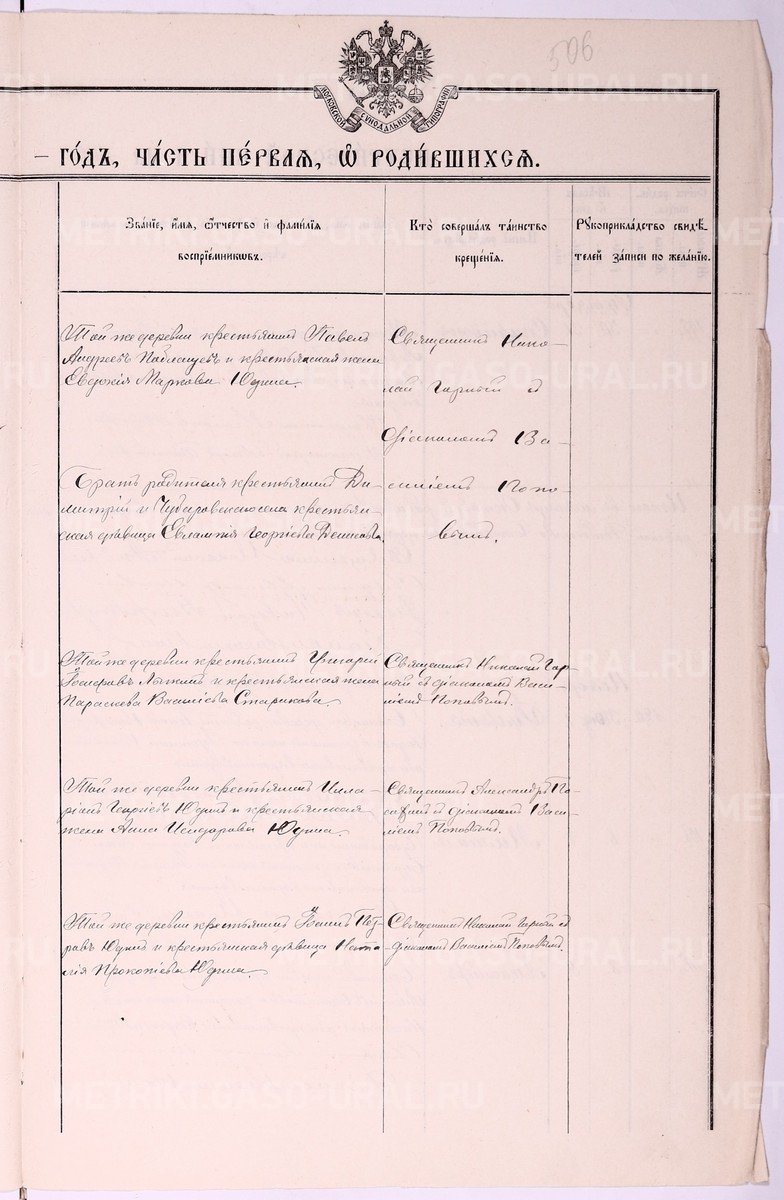 506
МОСКОВСКОЙ СѴНОДАЛЬНОЙ ТИПОГРАФІИ
— го́дъ, ча́сть пе́рвая, ѡ҆ роди́вшихся.
Зва́нїе, и҆́мя, ѻ҆́тчество и҆ фами́лїя
воспрїе́мникѡвъ.
Кто̀ соверша́лъ та́инство
креще́нїя.
Рꙋкоприкла́дство свидѣ́-
телей за́писи по жела́нїю.
Той же деревни крестьянинъ Павелъ
Андреевъ и крестьянская жена
Евдокія Маркова Юдина.
Священникъ Нико-
лай Гарный съ
Діакономъ Ва-
силіемъ Попо-
вымъ.
Братъ родителя крестьянинъ Ди-
митрій и Чубаровскаго села крестьян-
ская дѣвица Евлампія Георгіева Денисова
Той же деревни крестьянинъ Григорій
и крестьянская жена
Параскева Василіева Старикова.
Священникъ Николай Гар-
ный съ діакономъ Васи-
ліемъ Поповымъ.
Той же деревни крестьянинъ Илла-
ріонъ Георгіевъ Юдинъ и крестьянская
жена Анна Исидорова Юдина.
Священникъ Александръ По-
съ діакономъ Васи-
ліемъ Поповымъ.
Той же деревни крестьянинъ Пет-
ровъ Юдинъ и крестьянская дѣвица Ната-
лія Прокопіева Юдина.
Священникъ Николай Гарный съ
діакономъ Василіемъ Поповымъ.
METRIKI.GASO-URAL.RU